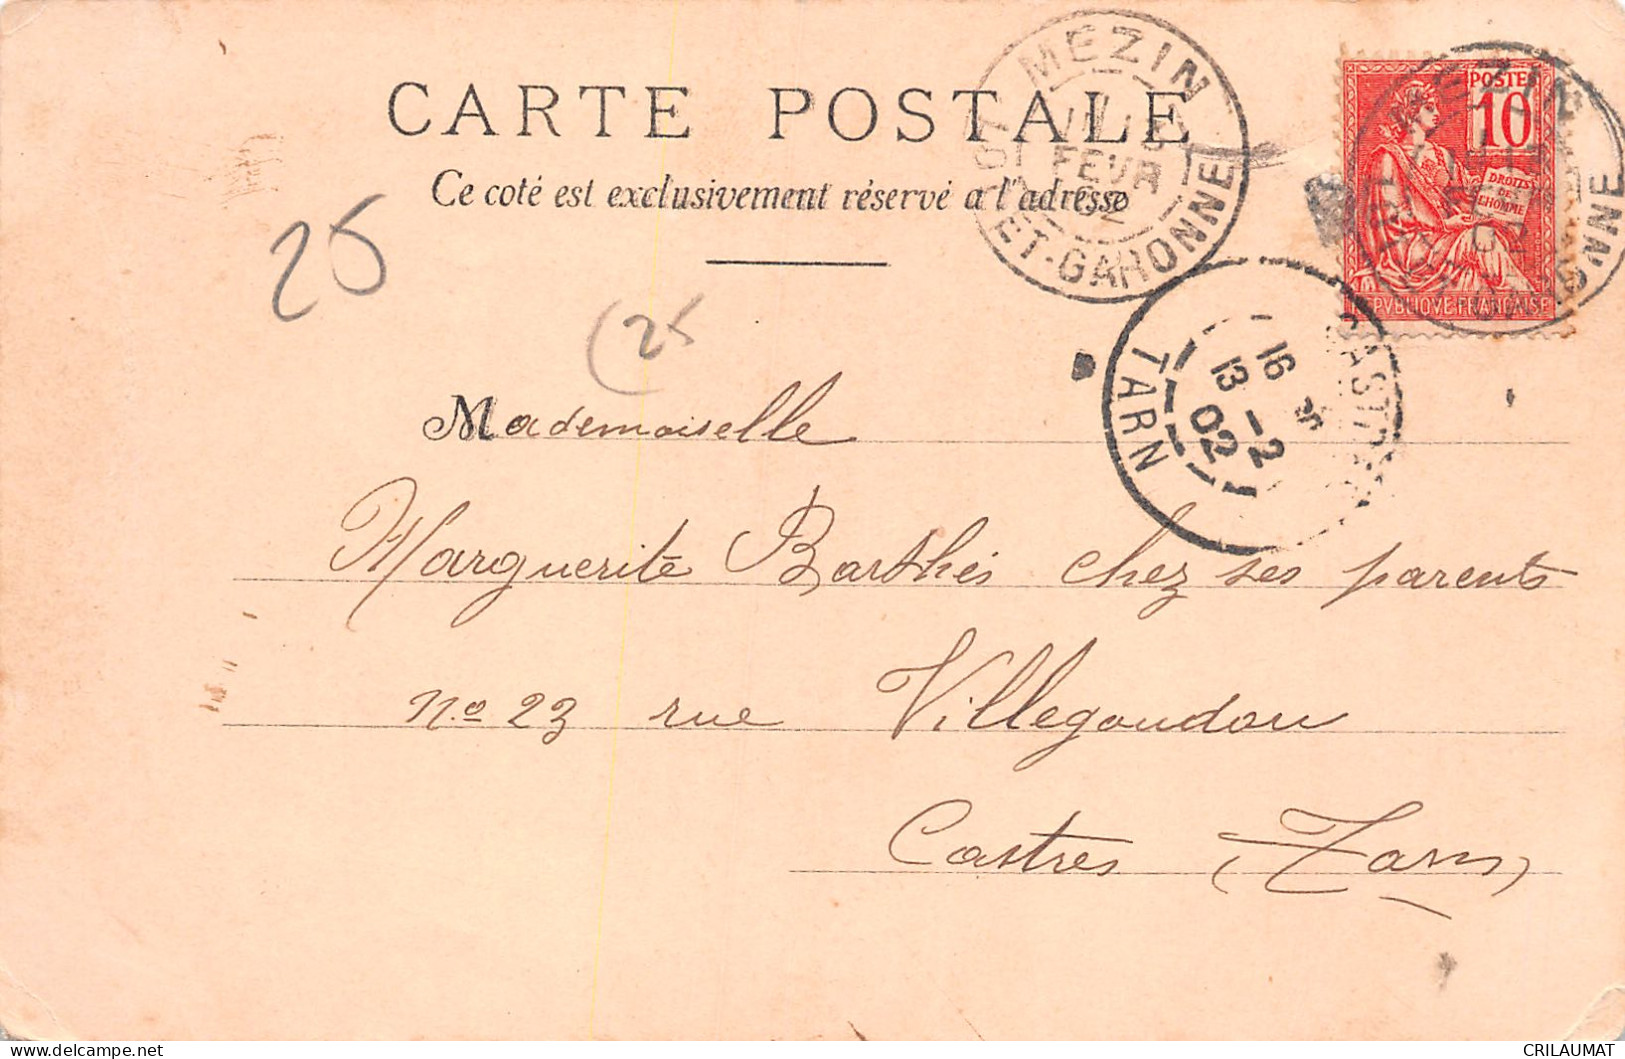 CARTE POSTALE
Ce coté est exclusivement réservé a l'adresse
MEZIN
FEVR
02
LOT
ET-GARONNE
POSTES
10
DROITS
DE
L'HOMME
REPVBLIQVE FRANÇAISE
MEZIN
CASTRES
16
13 -2
02
TARN
25
(25
Mademoiselle
Marguerite Barthés chez ses parents
No 23 rue Villegoudou
Castres (Tarn)
CRILAUMAT